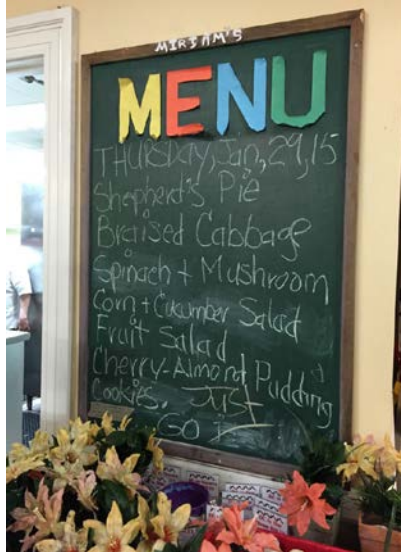 MIRIAM'S
MENU
THURSDAY, Jan, 29, 15
Shepherd's Pie
Braised Cabbage
Spinach + Mushroom
Corn + Cucumber Salad
Fruit Salad
Cherry-Almond Pudding
Cookies. JUST
GO